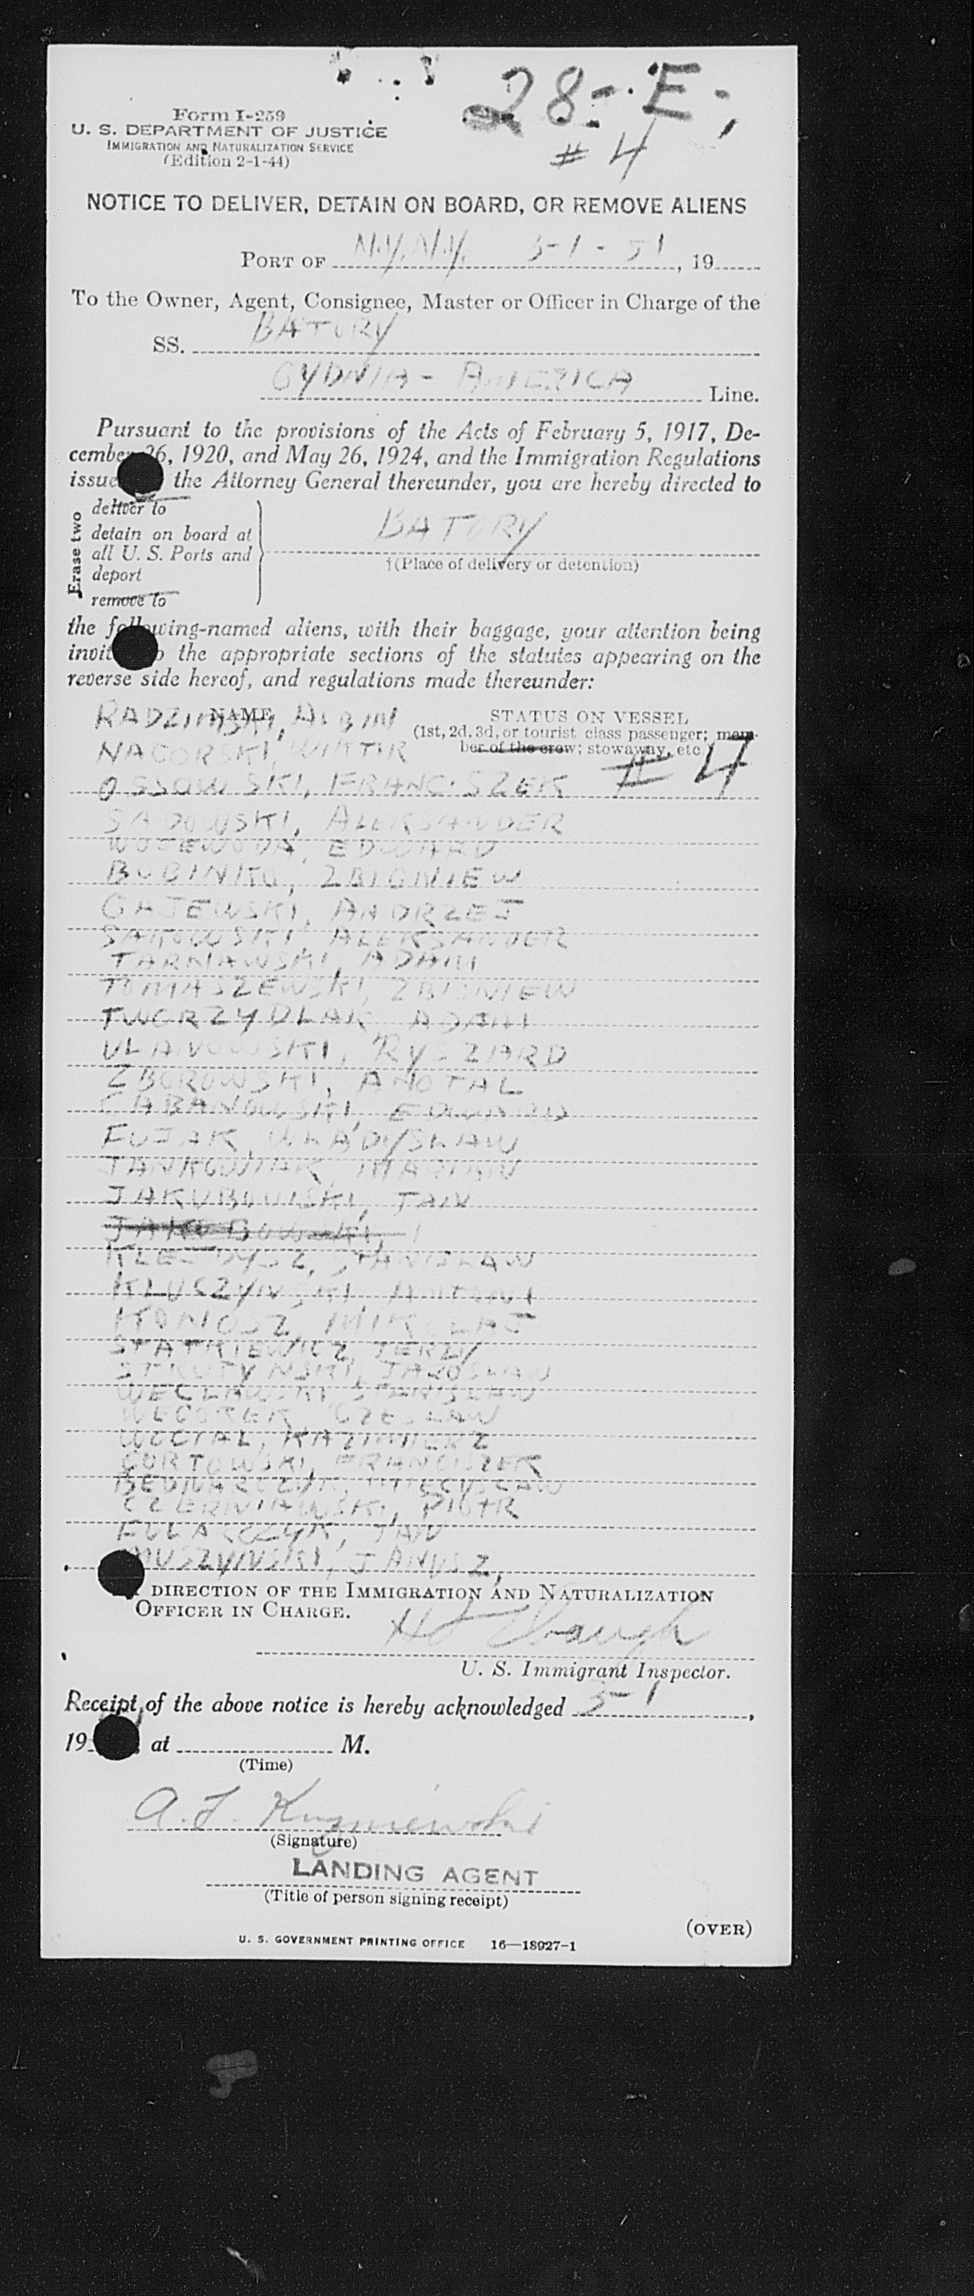 28-E,
#4
Form I-259
U. S. DEPARTMENT OF JUSTICE
IMMIGRATION AND NATURALIZATION SERVICE
(Edition 2-1-44)
NOTICE TO DELIVER, DETAIN ON BOARD, OR REMOVE ALIENS
PORT OF N.Y. N.Y. 5-1-51, 19
To the Owner, Agent, Consignee, Master or Officer in Charge of the
SS. BATORY
GYDNIA - AMERICA Line.
Pursuant to the provisions of the Acts of February 5, 1917, De-
cember 26, 1920, and May 26, 1924, and the Immigration Regulations
issue the Attorney General thereunder, you are hereby directed to
Erase two
deliver to
detain on board at
all U. S. Ports and
deport
remove to
BATORY
†(Place of delivery or detention)
the following-named aliens, with their baggage, your attention being
invit the appropriate sections of the statutes appearing on the
reverse side hereof, and regulations made thereunder:
NAME STATUS ON VESSEL
(1st, 2d, 3d, or tourist class passenger; mem-
ber of the crew; stowaway, etc
#4
RADZIMSKI, ALBIN
NAGORSKI, WIKTOR
OSSOWSKI, FRANCISZEK
SADOWSKI, ALEKSANDER
WOJEWODA, EDWARD
BUBINKO, ZBIGNIEW
GAJEWSKI, ANDRZEJ
SAKOWSKI, ALEKSANDER
TARNAWSKI, ADAM
TOMASZEWSKI, ZBIGNIEW
TWORZYDLAK, ADAM
ULANOWSKI, RYSZARD
ZBOROWSKI,
CABANOWSKI,
FUJAK, WLADYSLAW
JANKOWIAK, MARIAN
JAKUBOWSKI, JAN
JAKUBOWSKI,
STANISLAW
KLUSZYNSKI, ANTONI
KONOSZ, MIKOLAJ
STATKIEWICZ, JERZY
STRUTYNSKI, JAROSLAW
WECLAWSKI, STANISLAW
CZESLAW
WOCIAL, KAZIMIERZ
BORTOWSKI, FRANCISZEK
BEDNARCZYK, MIECYSLAW
CZERNIAWSKI, PIOTR
JAN
MUSZYNSKI, JANUSZ,
DIRECTION OF THE IMMIGRATION AND NATURALIZATION
OFFICER IN CHARGE.
U. S. Immigrant Inspector.
Receipt of the above notice is hereby acknowledged 5-1,
19 at M.
(Time)
A. J. Kuzniewski
(Signature)
LANDING AGENT
(Title of person signing receipt)
(OVER)
U. S. GOVERNMENT PRINTING OFFICE 16—18927-1